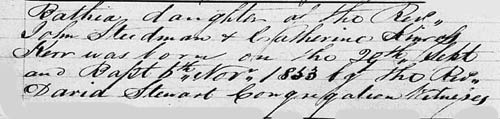 Bathia daughter of the Rev.,,
John Steedman & Catherine
Kerr was born on the 20th Sept
and Bapt 6th Nov,, 1853 by the Rev,,
David Stewart Congregation Witness